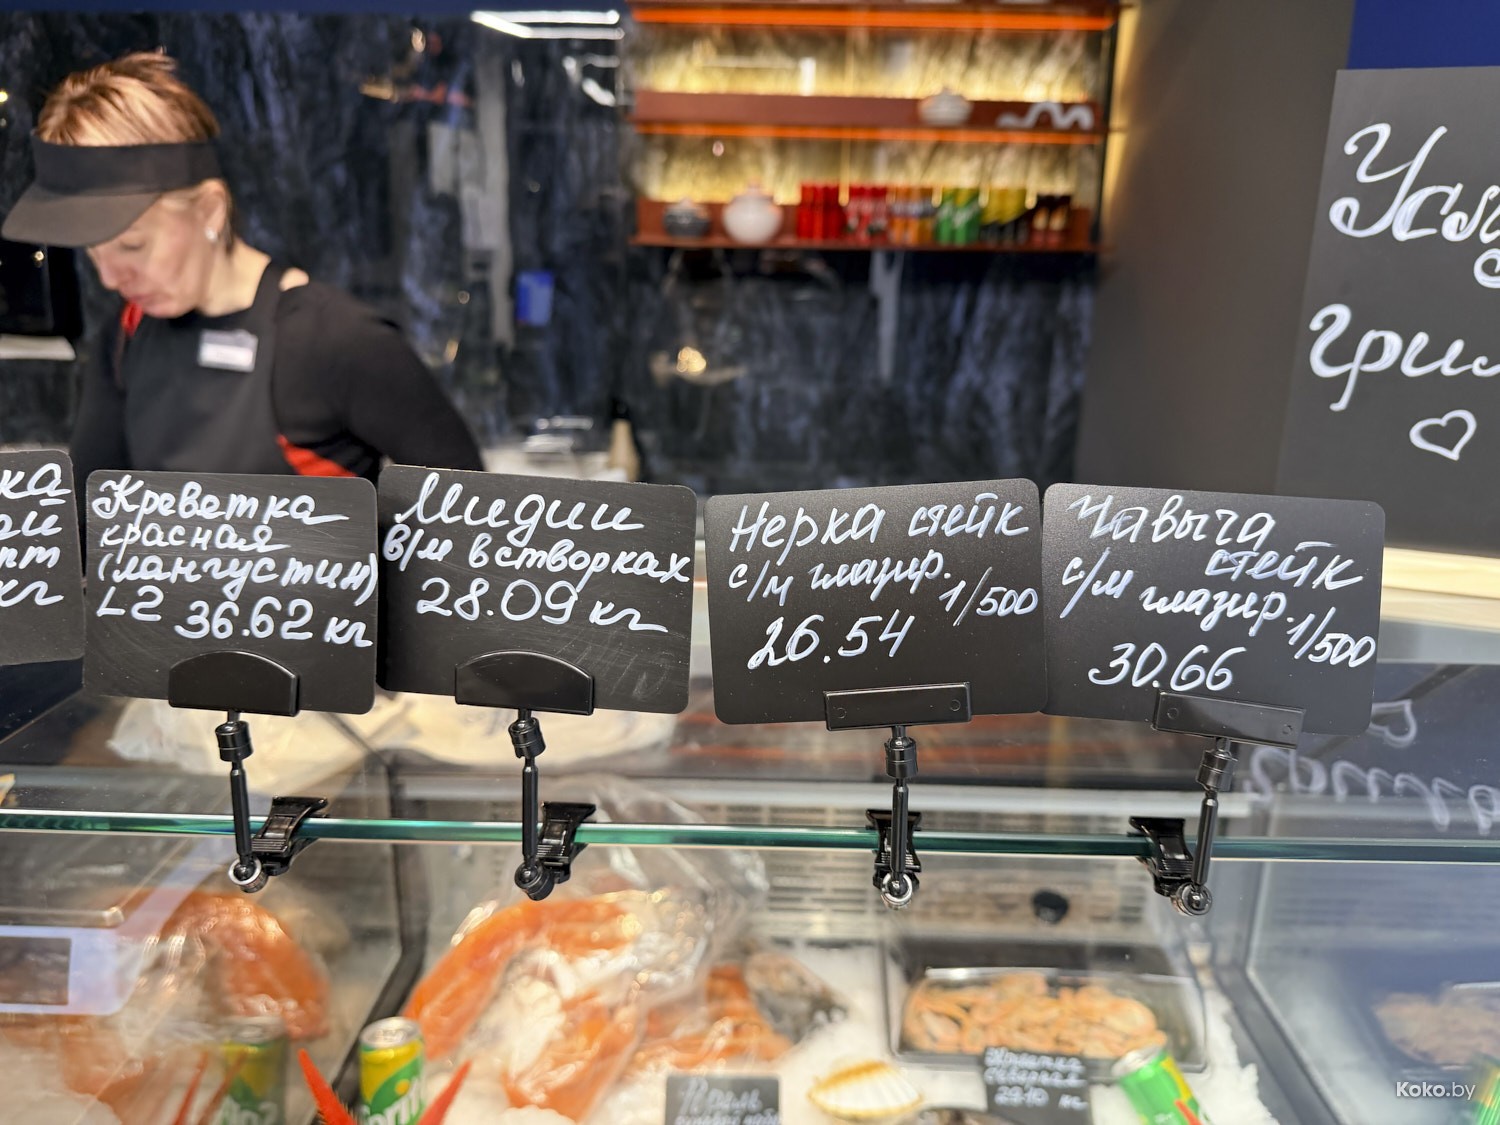 Креветка
красная
(лангустин)
L2 36.62 кг
Мидии
в/м в створках
28.09 кг
Нерка стейк
с/м глазир.
1/500
26.54
Чавыча
стейк
с/м глазир.
1/500
30.66
ка
кг
Koko.by